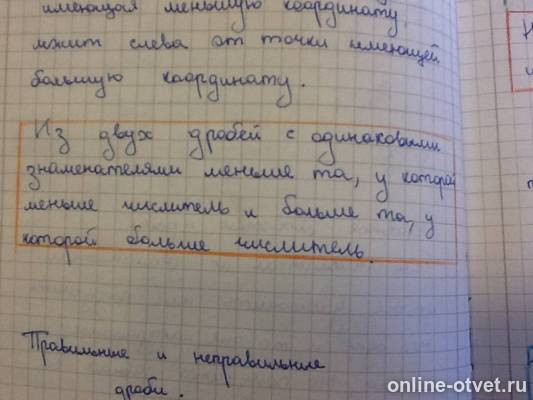 имеющая меньшую координату,
лежит слева от точки имеющей
большую координату.
Из двух дробей с одинаковыми
знаменателями меньше та, у которой
меньше числитель и больше та, у
которой больше числитель.
Правильные и неправильные
дроби.
online-otvet.ru